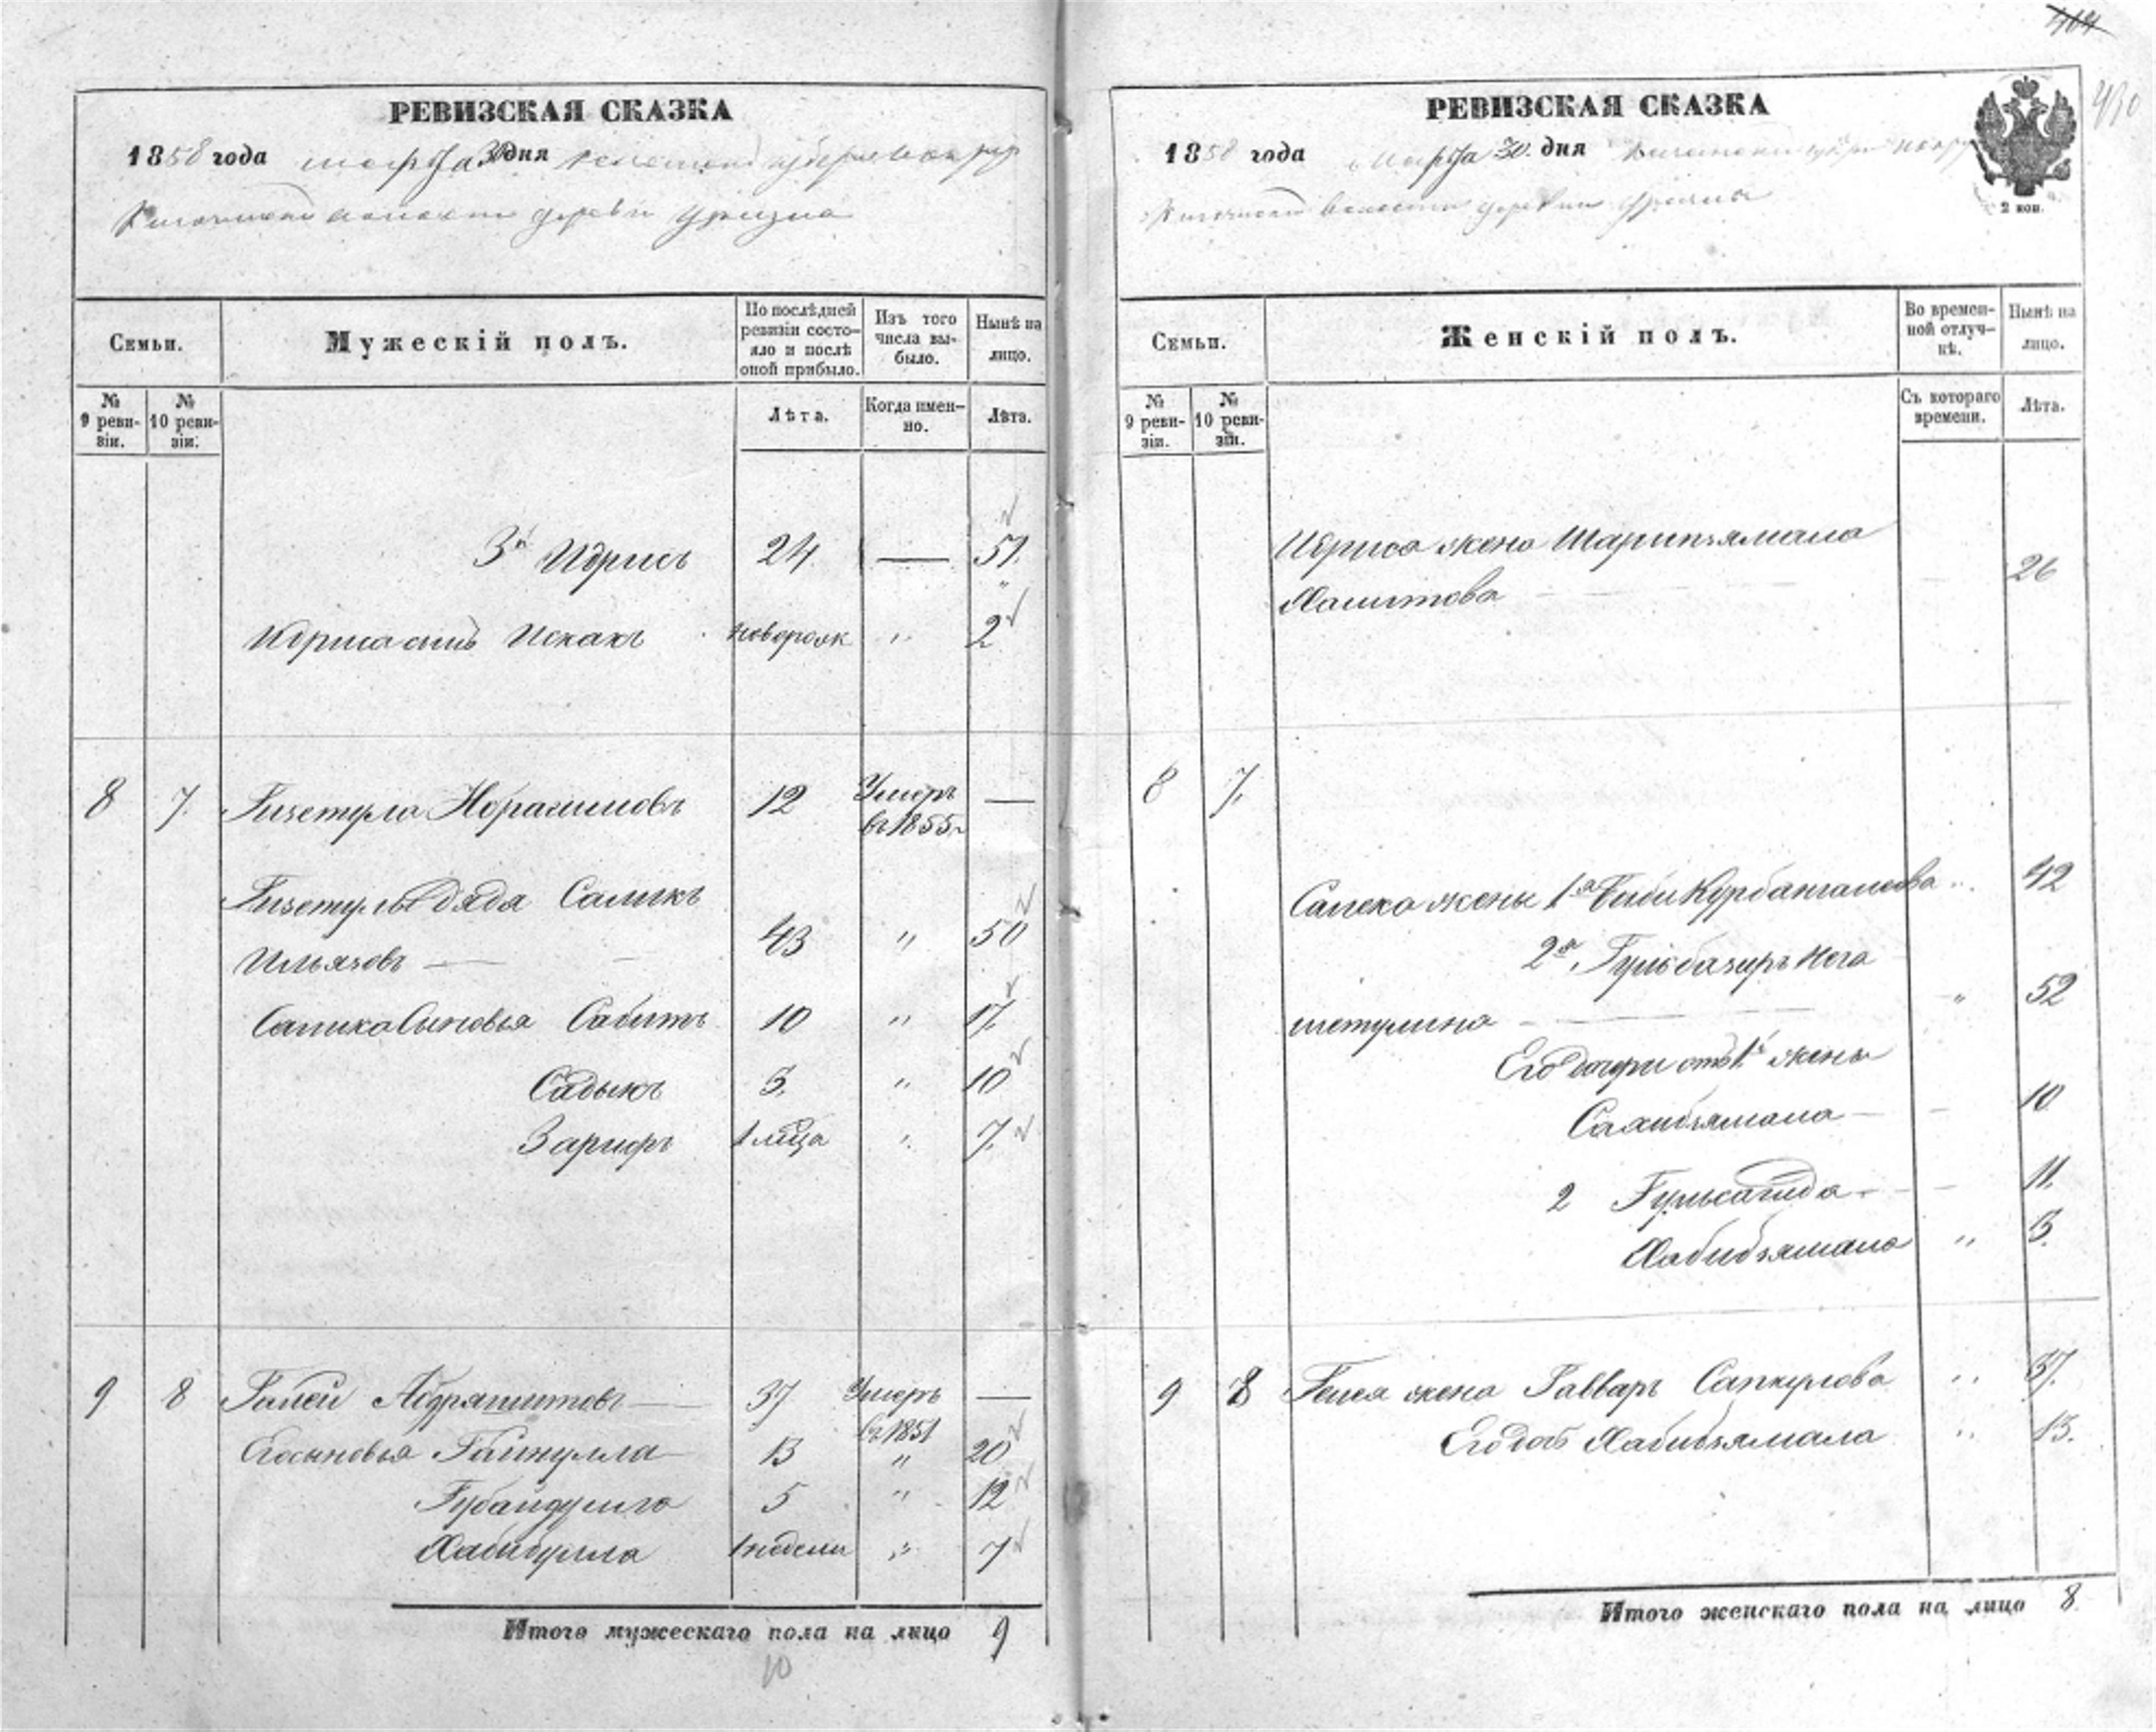 404
430
РЕВИЗСКАЯ СКАЗКА
1858 года марта 30 дня
волости деревни
Семьи.
Мужескій полъ.
По послѣдней ревизіи состояло и послѣ оной прибыло.
Изъ того числа выбыло.
Нынѣ на лицо.
№ 9 ревизіи.
№ 10 ревизіи.
Лѣта.
Когда именно.
Лѣта.
3й Идрисъ 24 — 31.
Идриса сынъ Исхакъ новорож " 2
8 7. 12 Умеръ въ 1855г —
дядя Саликъ
Ильясовъ — 43 " 50
Салика Сыновья Сабитъ 10 " 17.
Садыкъ 3. " 10
Зарифъ 1 мѣца " 7.
9 8 Галей Абдряшитовъ — 37 Умеръ въ 1851 —
Его сыновья Гайнулла 13 " 20
Губайдулла 5 " 12
Хабибулла 1 недели " 7
Итого мужескаго пола на лицо 9
10
РЕВИЗСКАЯ СКАЗКА
1858 года Марта 30. дня
волости деревни
2 коп.
Семьи.
Женскій полъ.
Во временной отлучкѣ.
Нынѣ на лицо.
№ 9 ревизіи.
№ 10 ревизіи.
Съ котораго времени.
Лѣта.
Идриса жена Шарипзямала
Хамитова — 26
8 7.
Салика жены 1я Биби Курбангалеева 42
2я, Гульбазиръ Нига
метулина — " 52
Его дочери отъ 1й жены
Сахибзямала — 10
2 — 11.
Хабибзямала " 3.
9 8 Галея жена Гавваръ Сапкулова " 37.
Его дочь Хабибзямала " 13.
Итого женскаго пола на лицо 8.